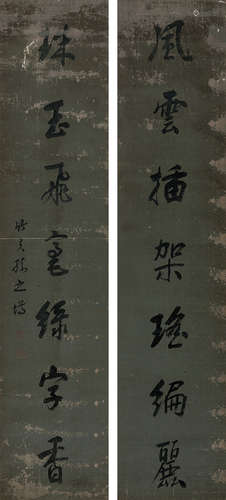 風雲插架瑤編麗
珠玉飛毫綠字香